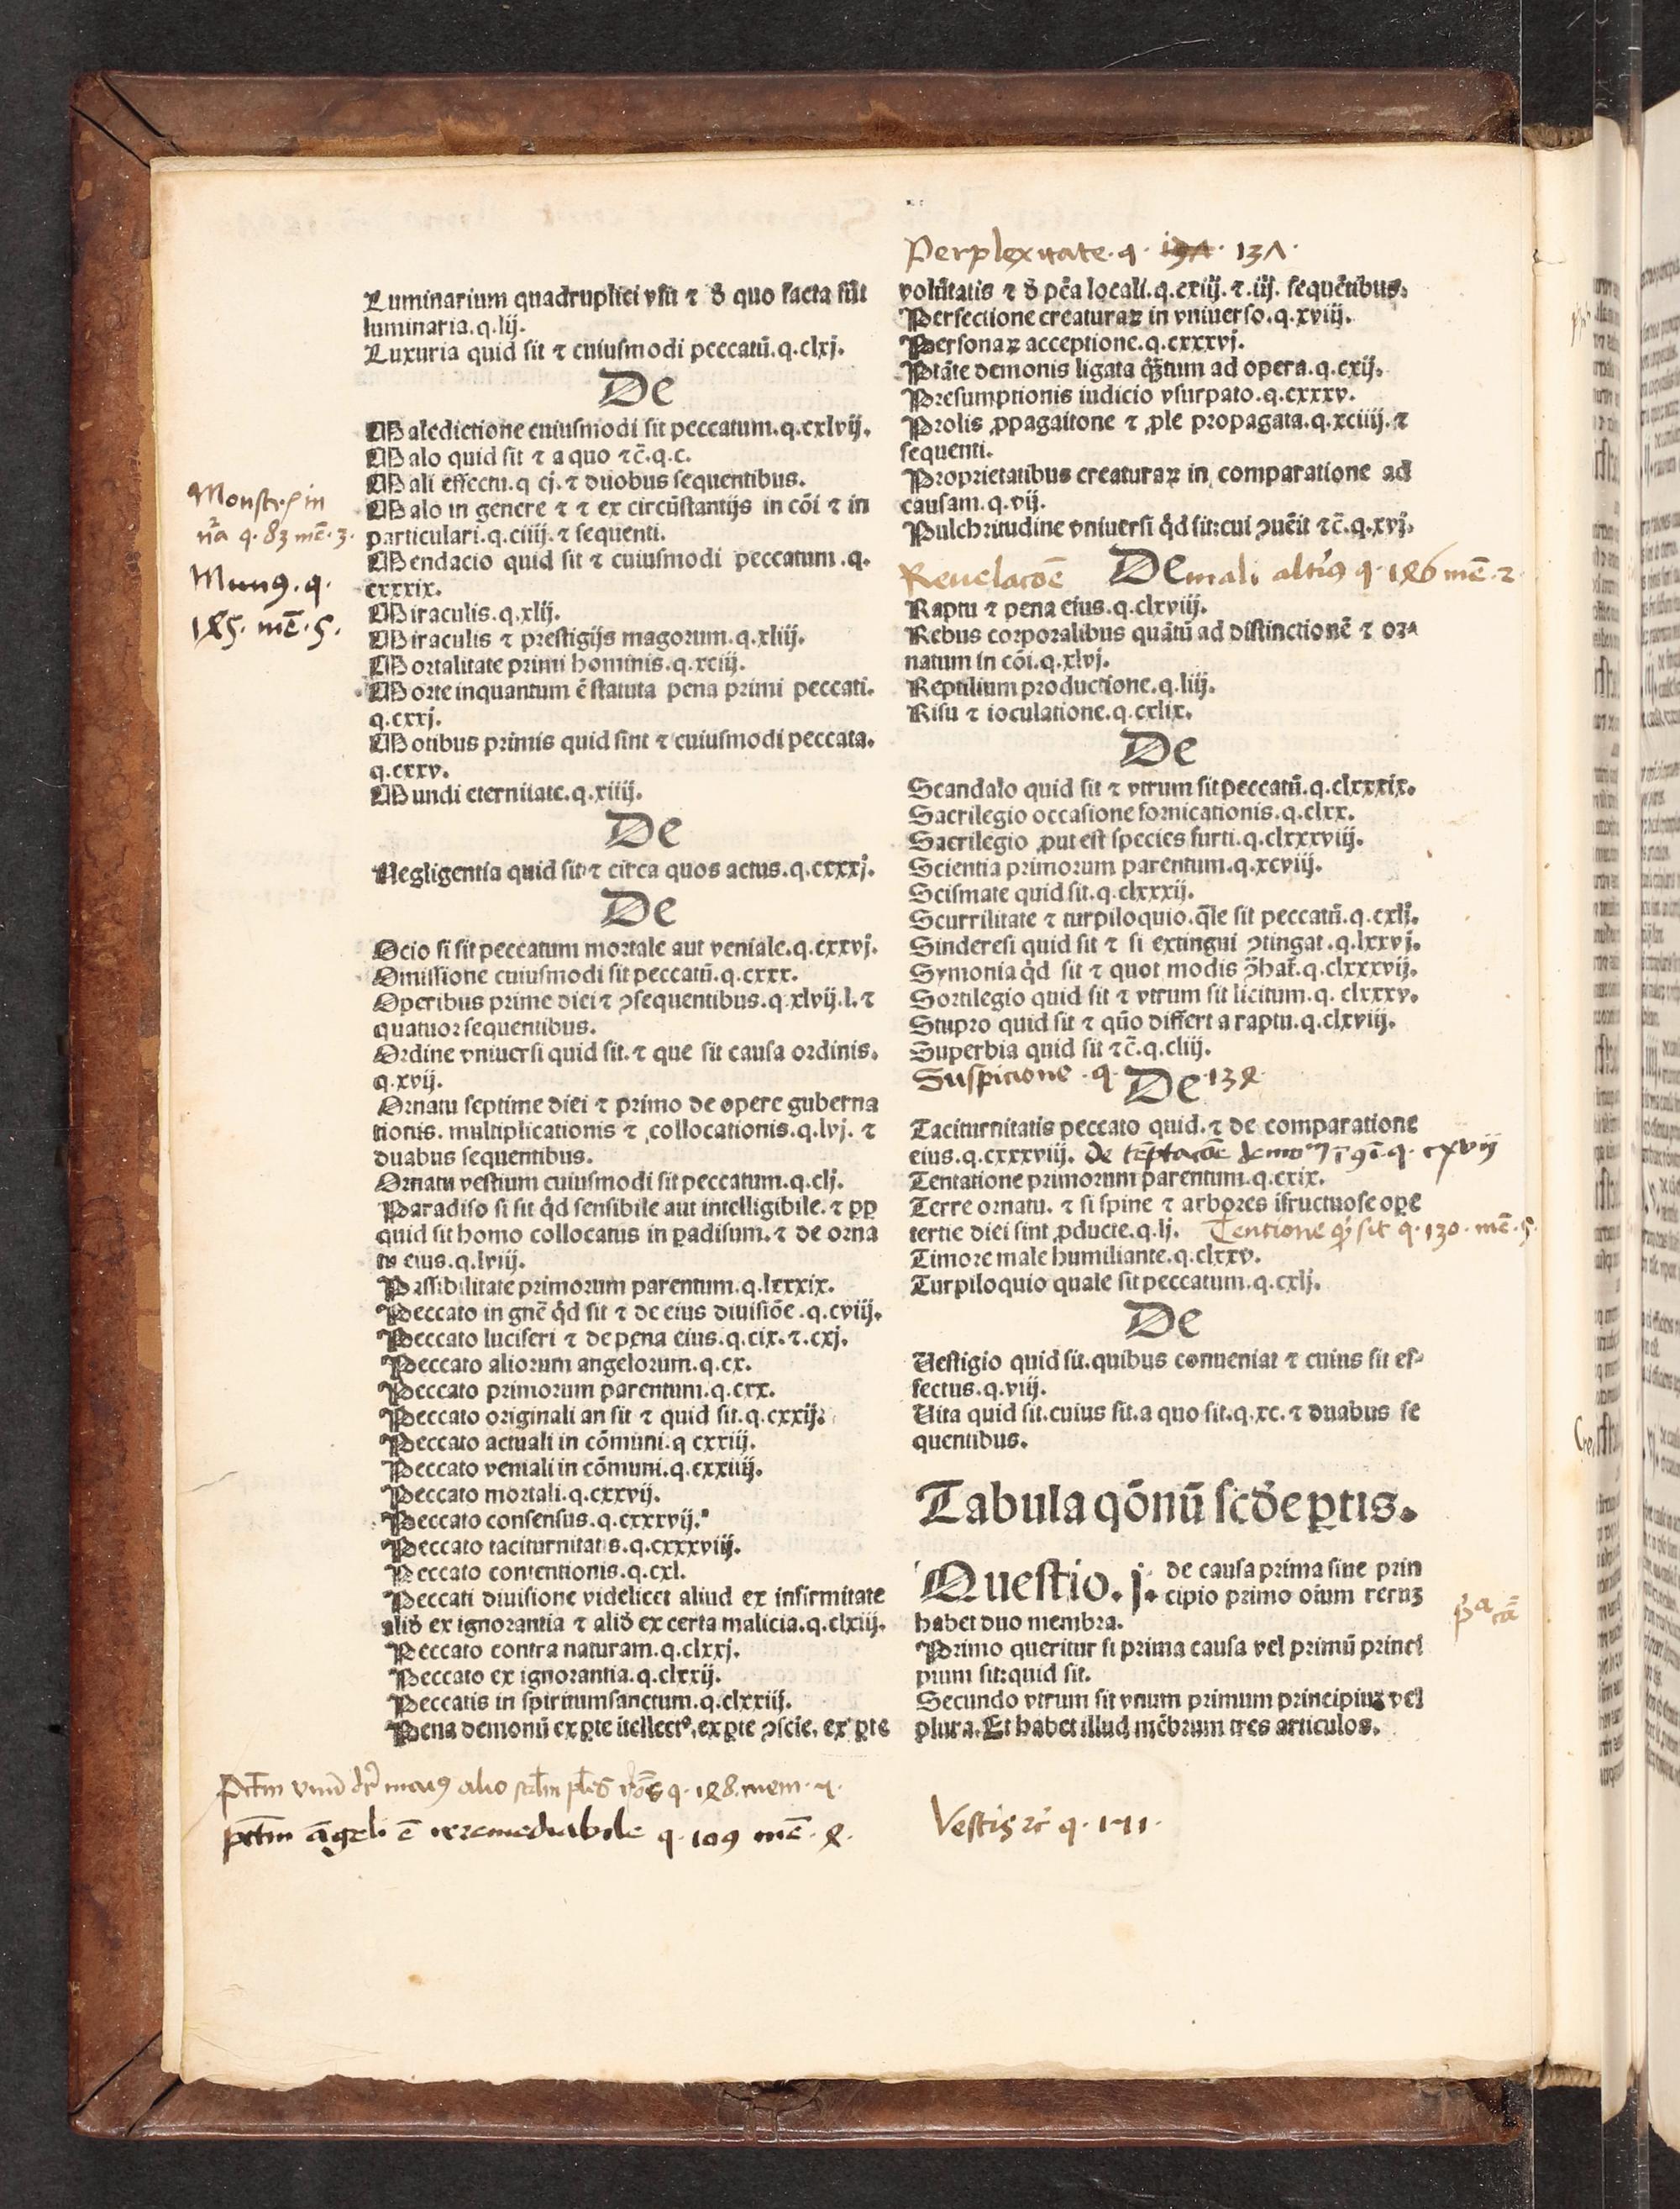 Luminarium quadruplici vsu ⁊ ð quo facta sūt
luminaria.q.lij.
Luxuria quid sit ⁊ cuiusmodi peccatū.q.clxj.
De
Maledictione cuiusmodi sit peccatum.q.cxlvij.
Malo quid sit ⁊ a quo ⁊c̄.q.c.
Mali effectu.q cj.⁊ duobus sequentibus.
Malo in genere ⁊ ⁊ ex circūstantijs in cōi ⁊ in
particulari.q.ciiij.⁊ sequenti.
Mendacio quid sit ⁊ cuiusmodi peccatum.q.
cxxxix.
Miraculis.q.xlij.
Miraculis ⁊ prestigijs magorum.q.xliij.
Mortalitate primi hominis.q.xciij.
Morte inquantum ē statuta pena primi peccati.
q.cxxj.
Motibus primis quid sint ⁊ cuiusmodi peccata.
q.cxxv.
Mundi eternitate.q.xiiij.
De
Negligentia quid sit ⁊ circa quos actus.q.cxxxj.
De
Ocio si sit peccatum mortale aut veniale.q.cxxvj.
Omissione cuiusmodi sit peccatū.q.cxxx.
Operibus prime diei ⁊ ꝯsequentibus.q.xlvij.l.⁊
quatuor sequentibus.
Ordine vniuersi quid sit.⁊ que sit causa ordinis.
q.xvij.
Ornatu septime diei ⁊ primo de opere guberna
tionis. multiplicationis ⁊ collocationis.q.lvj. ⁊
duabus sequentibus.
Ornatu vestium cuiusmodi sit peccatum.q.clj.
Paradiso si sit qd̓ sensibile aut intelligibile.⁊ ꝓp
quid sit homo collocatus in ꝑadisum.⁊ de orna
tu eius.q.lviij.
Passibilitate primorum parentum.q.lxxxix.
Peccato in gnē qd̓ sit ⁊ de eius diuisiōe.q.cviij.
Peccato luciferi ⁊ de pena eius.q.cix.⁊.cxj.
Peccato aliorum angelorum.q.cx.
Peccato primorum parentum.q.cxx.
Peccato originali an sit ⁊ quid sit.q.cxxij.
Peccato actuali in cōmuni.q cxxiij.
Peccato veniali in cōmuni.q.cxxiiij.
Peccato mortali.q.cxxvij.
Peccato consensus.q.cxxxvij.
Peccato taciturnitatis.q.cxxxviij.
Peccato contentionis.q.cxl.
Peccati diuisione videlicet aliud ex infirmitate
alið ex ignorantia ⁊ alið ex certa malicia.q.clxiij.
Peccato contra naturam.q.clxxj.
Peccato ex ignorantia.q.clxxij.
Peccatis in spiritumsanctum.q.clxxiij.
Pena demonū ex ꝑte ītellectꝰ.ex ꝑte ꝯscīe. ex ꝑte
Monstr. in
q. 83 mē. 3.
Munꝰ. q.
185. mē. 5.
maiꝰ alio q. 188. mem. 4.
pctm āgeli ē irremediabile q. 109 mē. 2.
Perplexitate. q. 137.
volūtatis ⁊ ð pēa locali.q.cxiij.⁊.iij. sequētibus.
Perfectione creaturaꝝ in vniuerso.q.xviij.
Personaꝝ acceptione.q.cxxxvj.
Ptāte demonis ligata q̄ꝫtum ad opera.q.cxij.
Presumptionis iudicio vsurpato.q.cxxxv.
Prolis ꝓpagaitone ⁊ ꝓle propagata.q.xciiij.⁊
sequenti.
Proprietatibus creaturaꝝ in comparatione ad
causam.q.vij.
Pulchritudine vniuersi qd̓ sit:cui ꝯuēit ⁊c̄.q.xvj.
Reuelacōē De mali altiꝰ q. 186 mē. 2.
Raptu ⁊ pena eius.q.clxviij.
Rebus corporalibus quātū ad distinctionē ⁊ or⸗
natum in cōi.q.xlvj.
Reptilium productione.q.liij.
Risu ⁊ ioculatione.q.cxlix.
De
Scandalo quid sit ⁊ vtrum sit peccatū.q.clxxxix.
Sacrilegio occasione fornicationis.q.clxx.
Sacrilegio ꝓut est species furti.q.clxxxviij.
Scientia primorum parentum.q.xcviij.
Scismate quid sit.q.clxxxij.
Scurrilitate ⁊ turpiloquio.q̄le sit peccatū.q.cxlj.
Sinderesi quid sit ⁊ si extingui ꝯtingat.q.lxxvj.
Symonia qd̓ sit ⁊ quot modis ꝯ̄hat̄.q.clxxxvij.
Sortilegio quid sit ⁊ vtrum sit licitum.q. clxxxv.
Stupro quid sit ⁊ qūo differt a raptu.q.clxviij.
Superbia quid sit ⁊c̄.q.cliij.
Suspicione .q. De 132
Taciturnitatis peccato quid.⁊ de comparatione
eius.q.cxxxviij. de tēptacōe q. cxvij
Tentatione primorum parentum.q.cxix.
Terre ornatu. ⁊ si spine ⁊ arbores īfructuose oꝑe
tertie diei sint ꝓducte.q.lj. Tentione qd̓ sit q. 130. mē. 5.
Timore male humiliante.q.clxxv.
Turpiloquio quale sit peccatum.q.cxlj.
De
Uestigio quid sit.quibus conueniat ⁊ cuius sit ef⸗
fectus.q.viij.
Uita quid sit.cuius sit.a quo sit.q.xc.⁊ duabus se
quentibus.
Tabula qōnū scðe ꝑtis.
Questio.j. de causa prima sine prin
cipio primo oīum reruꝫ
habet duo membra.
Primo queritur si prima causa vel primū princi
pium sit:quid sit.
Secundo vtrum sit vnum primum principiuꝫ vel
plura.Et habet illud mēbrum tres articulos.
Vestis ⁊c̄ q. 141.